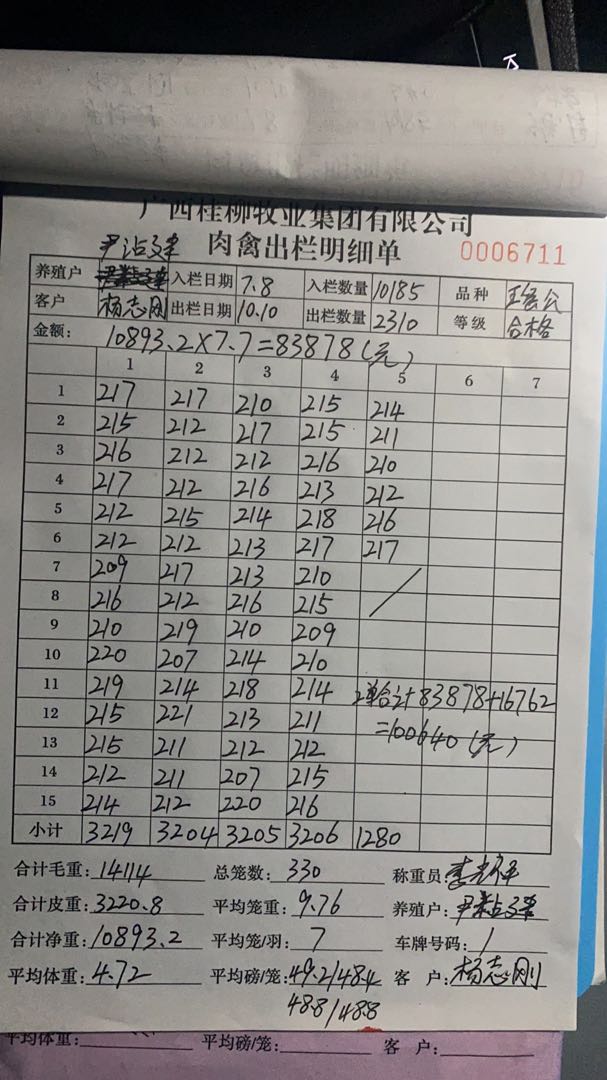 广西桂柳牧业集团有限公司
肉禽出栏明细单 0006711
养殖户 入栏日期 7.8 入栏数量 10185 品种
客户 杨志刚 出栏日期 10.10 出栏数量 2310 等级 合格
金额: 10893.2×7.7=83878(元)
1 2 3 4 5 6 7
1 217 217 210 215 214
2 215 212 217 215 211
3 216 212 212 216 210
4 217 212 216 213 212
5 212 215 214 218 216
6 212 212 213 217 217
7 209 217 213 210
8 216 212 216 215
9 210 219 210 209
10 220 207 214 210
11 219 214 218 214 2单合计83878+16762
12 215 221 213 211 =100640(元)
13 215 211 212 212
14 212 211 207 215
15 214 212 220 216
小计 3219 3204 3205 3206 1280
合计毛重: 14114 总笼数: 330 称重员:
合计皮重: 3220.8 平均笼重: 9.76 养殖户:
合计净重: 10893.2 平均笼/羽: 7 车牌号码: 1
平均体重: 4.72 平均磅/笼: 49.2/48.4 客 户: 杨志刚
48.8/48.8
平均体重: 平均磅/笼: 客 户: